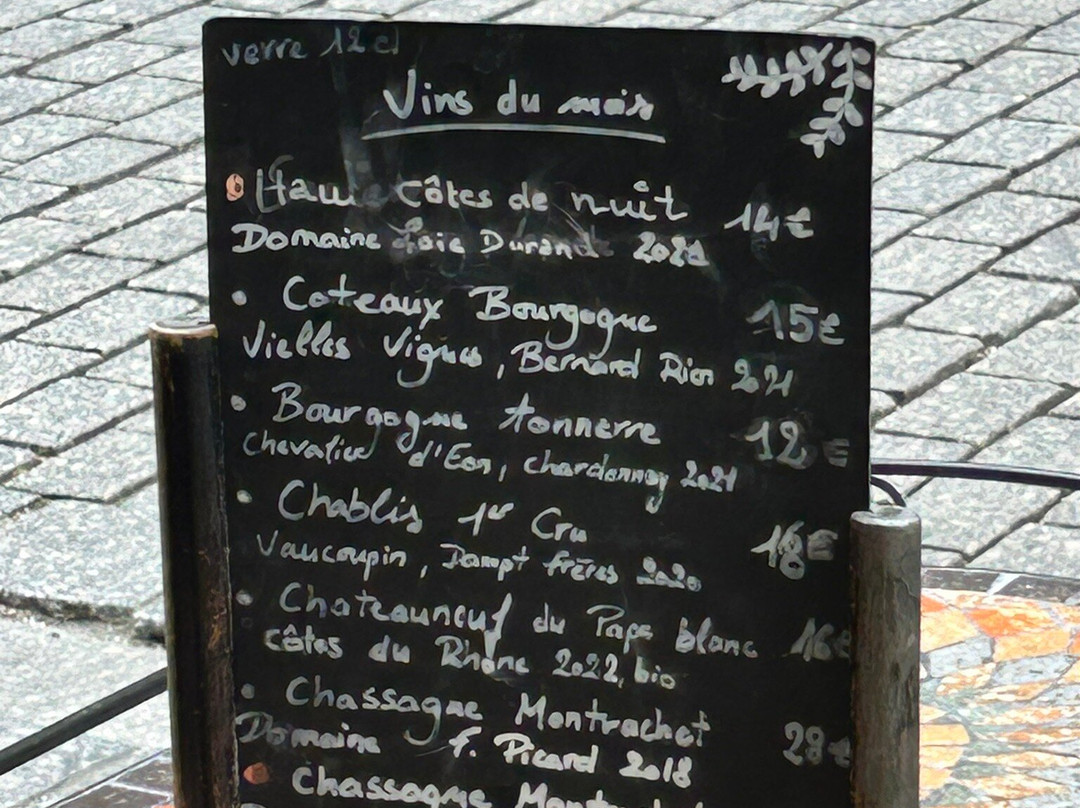 verre 12 cl
Vins du mois
Haute Côtes de nuit 14€
Domaine Durand
• Coteaux Bourgogne 15€
Vielles Vignes, Bernard Rion 2021
• Bourgogne tonnerre 12€
Chevalier d'Eon, chardonnay 2021
• Chablis 1er Cru
Vaucoupin, Dampt frères 2020
• Chateauneuf du Pape blanc 16€
côtes du Rhône 2022, bio
• Chassagne Montrachet 28€
Domaine F. Picard 2018
Chassagne